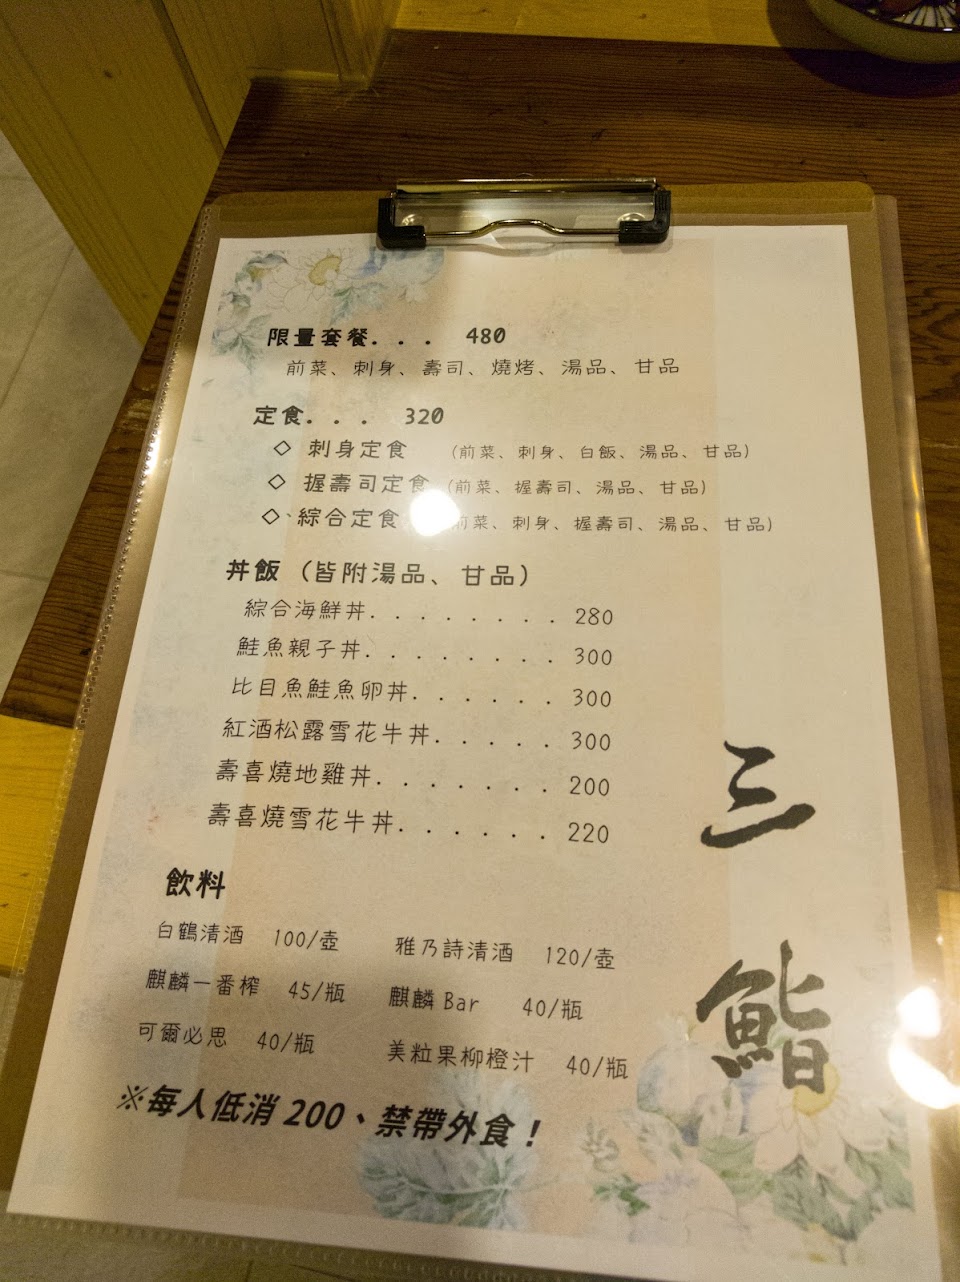 限量套餐. . . 480
前菜、刺身、壽司、燒烤、湯品、甘品
定食. . . 320
◇ 刺身定食 (前菜、刺身、白飯、湯品、甘品)
◇ 握壽司定食 (前菜、握壽司、湯品、甘品)
◇ 綜合定食 前菜、刺身、握壽司、湯品、甘品)
丼飯 (皆附湯品、甘品)
綜合海鮮丼. . . . . . . . 280
鮭魚親子丼. . . . . . . . 300
比目魚鮭魚卵丼. . . . . . 300
紅酒松露雪花牛丼. . . . . 300
壽喜燒地雞丼. . . . . . . 200
壽喜燒雪花牛丼. . . . . . 220
飲料
白鶴清酒 100/壺 雅乃詩清酒 120/壺
麒麟一番榨 45/瓶 麒麟 Bar 40/瓶
可爾必思 40/瓶 美粒果柳橙汁 40/瓶
※每人低消 200、禁帶外食！
三鮨